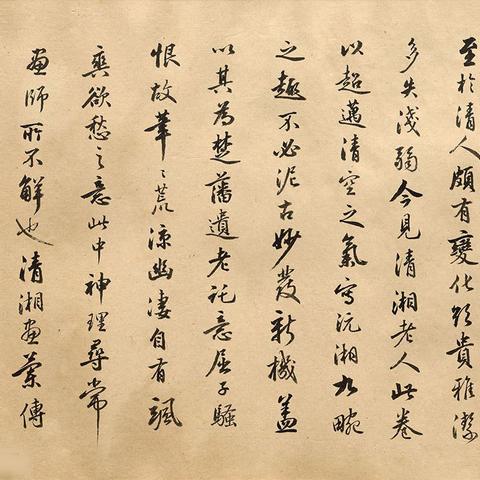 至於清人頗有變化雖貴雅潔
多失淺弱今見清湘老人此卷
以超邁清空之氣寫沅湘九畹
之趣不必泥古妙發新機蓋
以其為楚藩遺老託意屈子騷
恨故筆〻荒涼幽淒自有颯
爽欲愁之意此中神理尋常
畫師所不解也清湘畫蘭傳